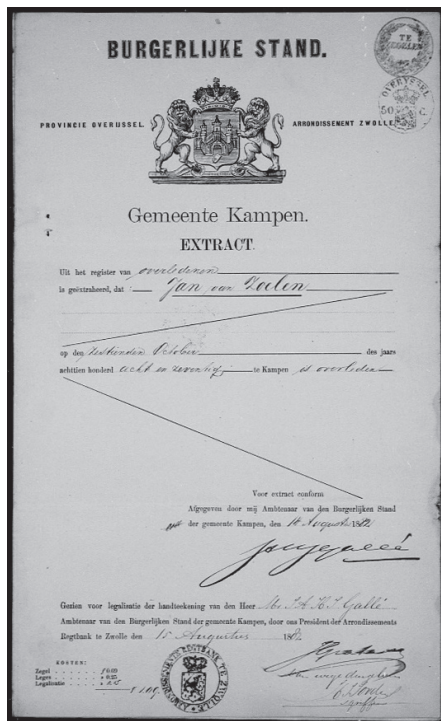 TE
ZWOLLE
BURGERLIJKE STAND.
OVERYSSEL
50 C.
PROVINCIE OVERIJSSEL.
ARRONDISSEMENT ZWOLLE.
Gemeente Kampen.
EXTRACT.
Uit het register van overledenen
is geëxtraheerd, dat Jan van Zoelen
op den zestienden October des jaars
achttien honderd acht en zeventig te Kampen is overleden
Voor extract conform
Afgegeven door mij Ambtenaar van den Burgerlijken Stand
der gemeente Kampen, den 14 Augustus 1882
Gezien voor legalisatie der handteekening van den Heer Mr. I.A.H.I. Gallé
Ambtenaar van den Burgerlijken Stand der gemeente Kampen, door ons President der Arrondissements
Regtbank te Zwolle den 15 Augustus 1882
KOSTEN:
Zegel
Leges " 0.25
Legalisatie
ARRONDISSEMENTS REGTBANK TE ZWOLLE